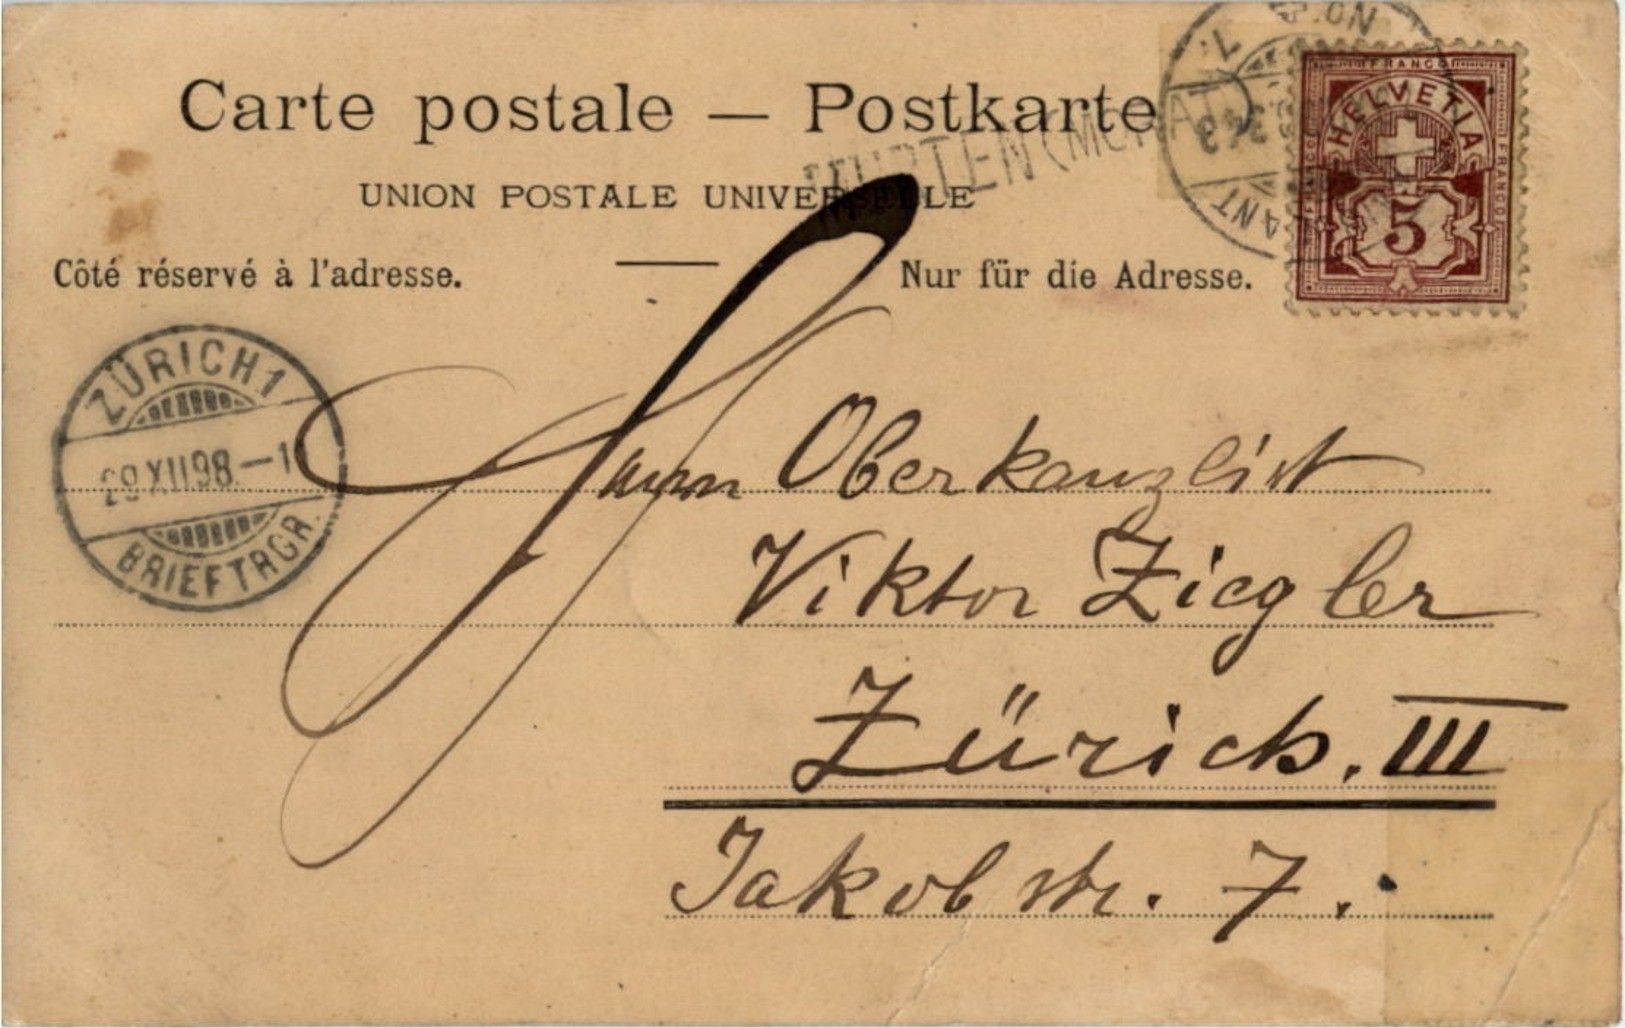 Carte postale — Postkarte
MURTEN (MORAT)
UNION POSTALE UNIVERSELLE
Côté réservé à l'adresse.
Nur für die Adresse.
FRANCO
HELVETIA
FRANCO
FRANCO
5
AMBULANT
ZÜRICH 1
29 XII 98 – 1
BRIEFTRGR.
Herrn Oberkanzlist
Viktor Ziegler
Zürich. III
Jakobstr. 7.